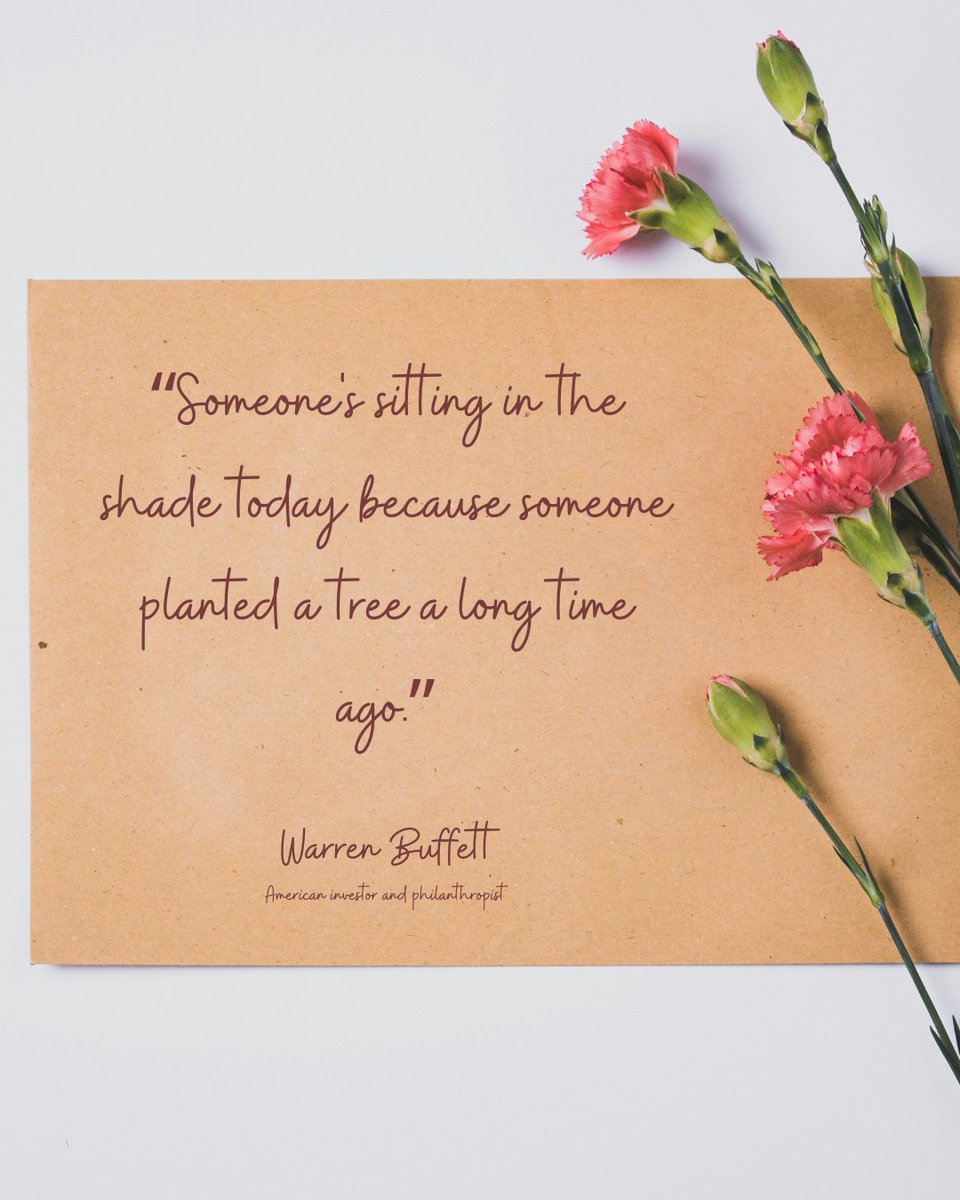 "Someone's sitting in the
shade today because someone
planted a tree a long time
ago."
Warren Buffett
American investor and philanthropist